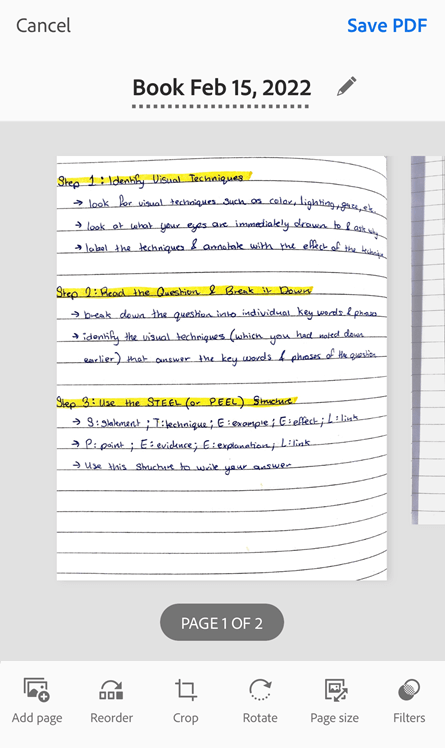 Cancel
Save PDF
Book Feb 15, 2022
Step 1: Identify Visual Techniques
→ look for visual techniques such as color, lighting, gaze, etc.
→ look at what your eyes are immediately drawn to & ask why
→ label the techniques & annotate with the effect of the technique
Step 2: Read the Question & Break it Down
→ break down the question into individual key words & phrases
→ identify the visual techniques (which you had noted down
earlier) that answer the key words & phrases of the question
Step 3: Use the STEEL (or PEEL) Structure
→ S: statement ; T: technique ; E: example ; E: effect ; L: link
→ P: point ; E: evidence ; E: explanation ; L: link
→ Use this structure to write your answer
PAGE 1 OF 2
Add page
Reorder
Crop
Rotate
Page size
Filters